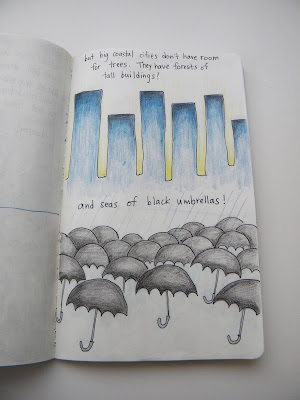 but big coastal cities don't have room
for trees. They have forests of
tall buildings!
and seas of black umbrellas!